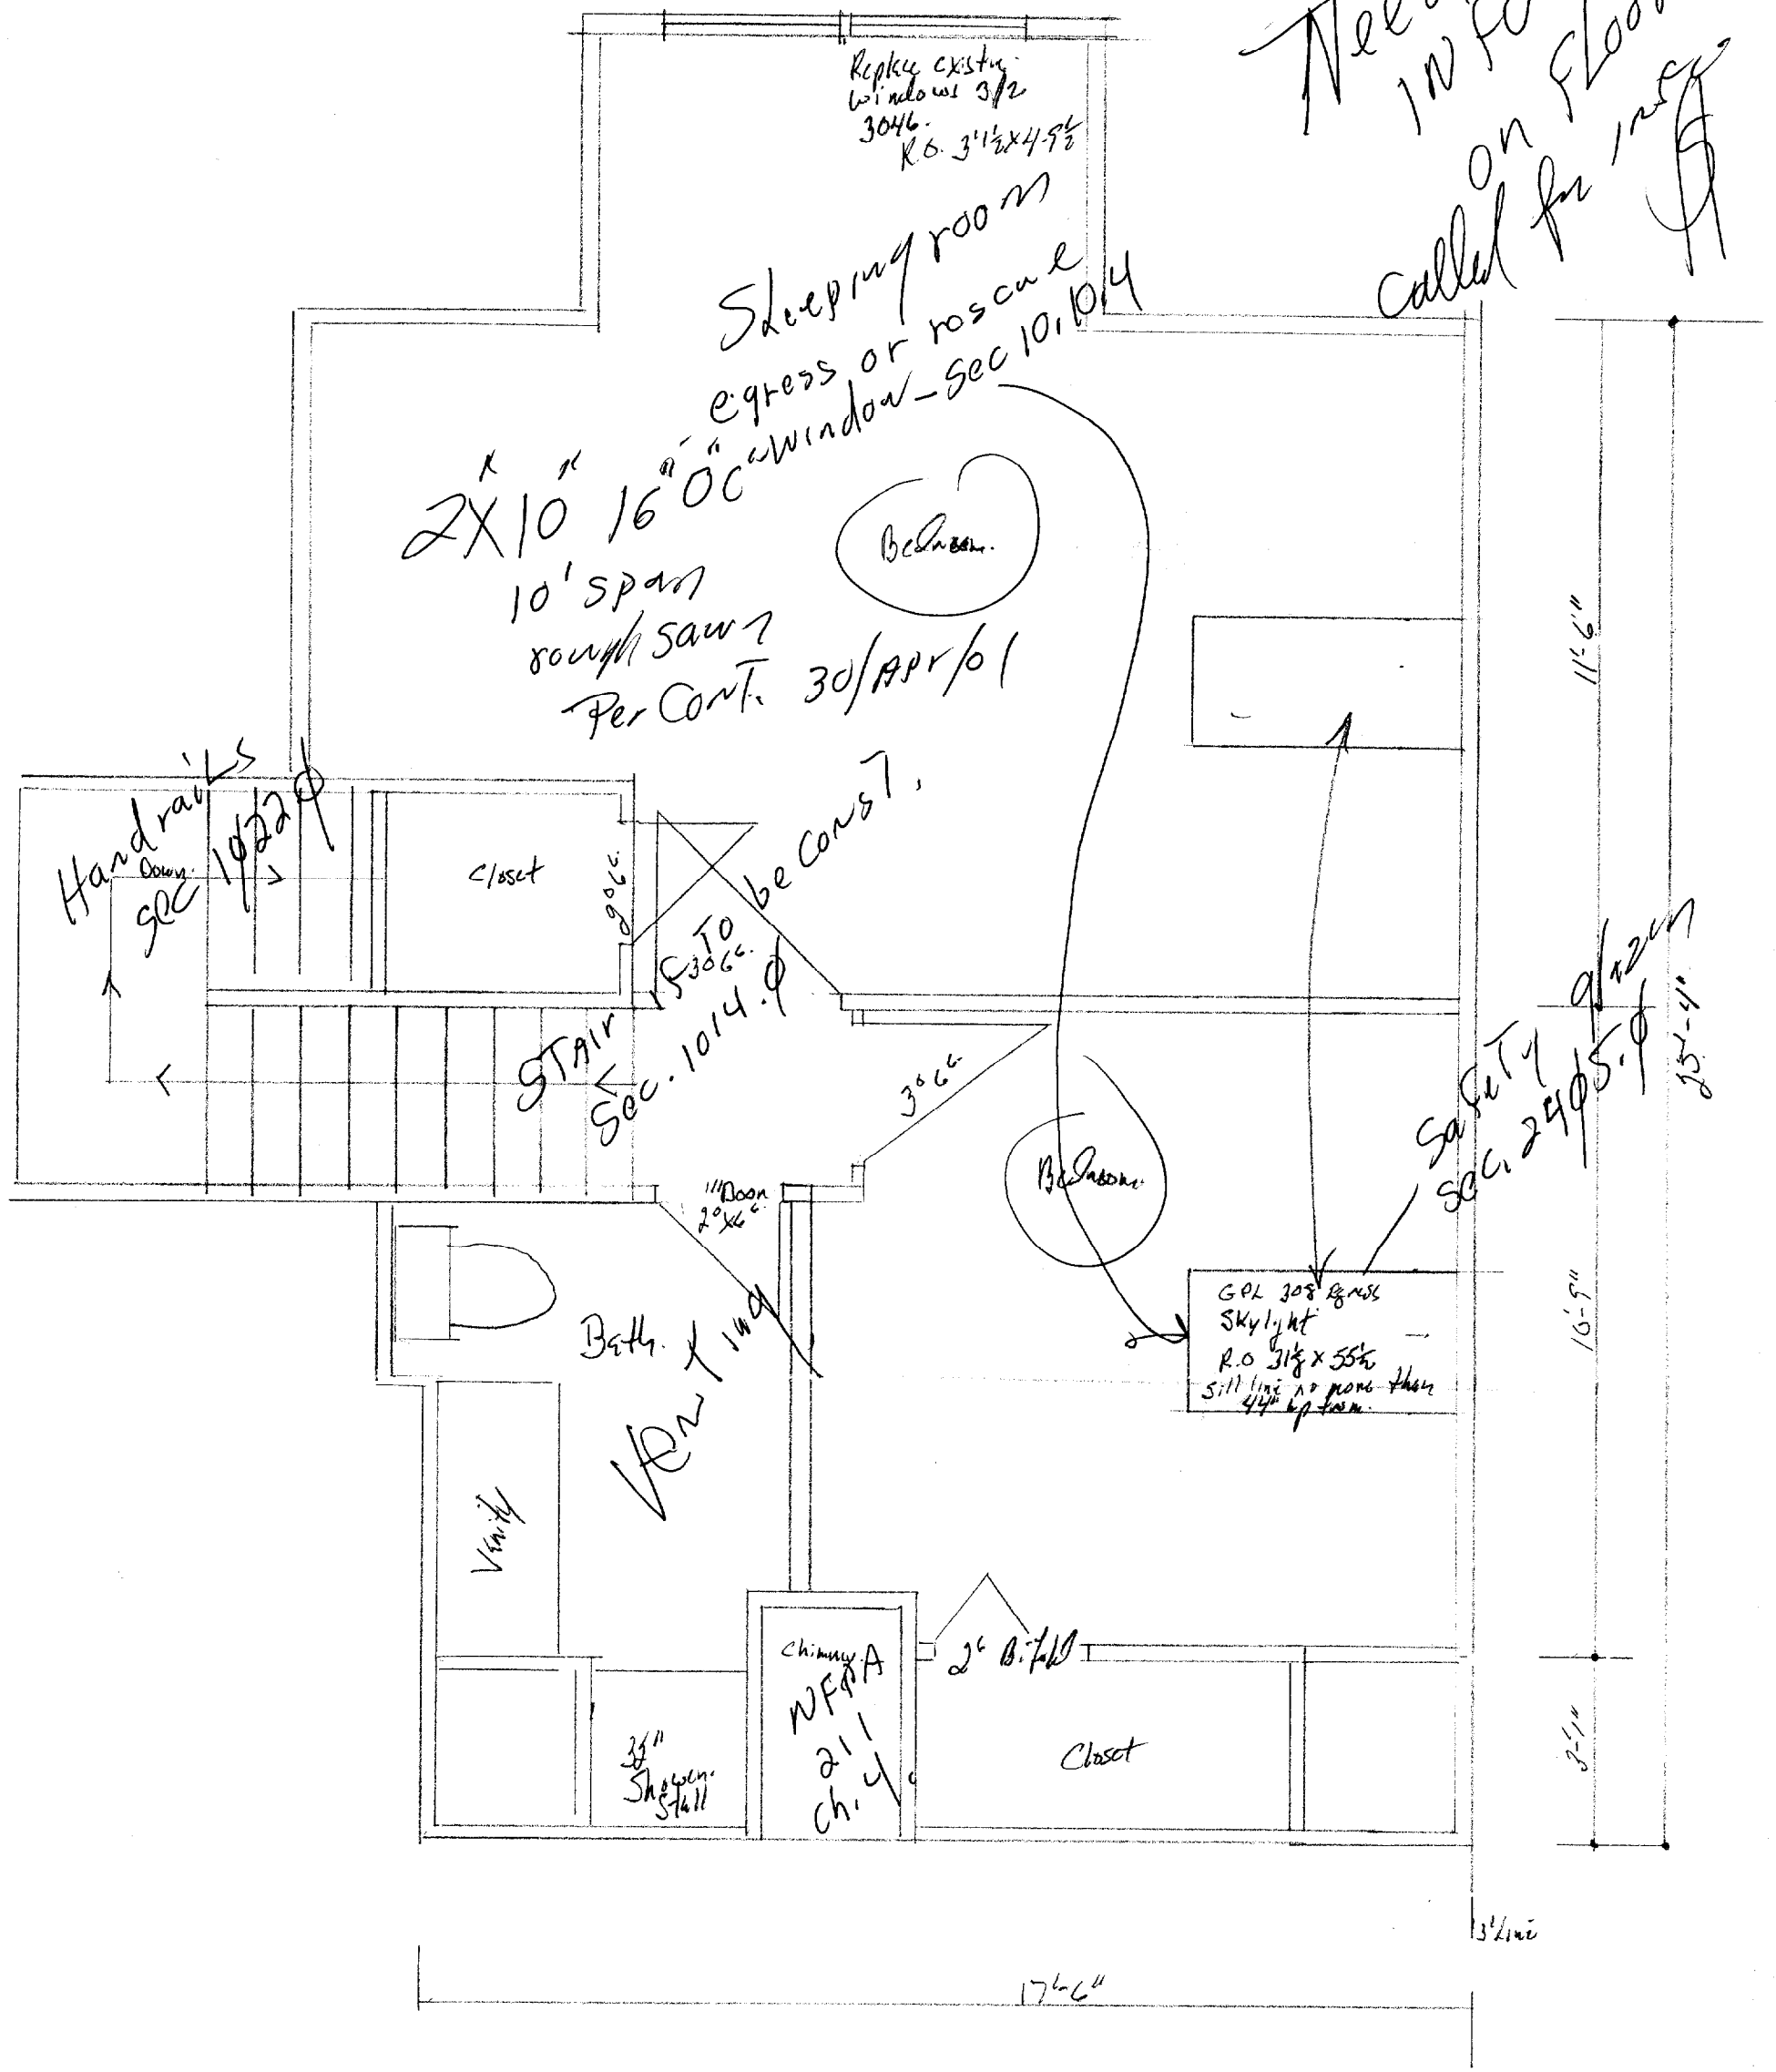 Replace existin.
windows 3/2
3046.
R.O. 3'1½ x 4-9½
Need
INFO
on Floor
called for info
Sleeping room
egress or roscue
window - Sec 10.10.4
2"X10" 16" OC
10' span
rough sawn
Per Cont. 30/Apr/01
Bedroom.
11'-6"
Handrails
Sec 1022.0
Down.
Closet
2⁰6⁶
Stairs To be Const.
Sec. 1014.0
3⁰6⁶
3⁰6⁶
Safety glazin
Sec. 2405.0
25'-4"
Bedroom.
Door
2⁰x6⁶
Bath.
Venting
GPL 308 Egress
Skylight
R.O 31½ x 55½
sill line no more than
44" up from.
10'-9"
Vanity
Chimney
NFPA
211
Ch. 4
2⁶ Bifold
Shower
Stall
Closet
3'-1"
3'Line
17'-6"